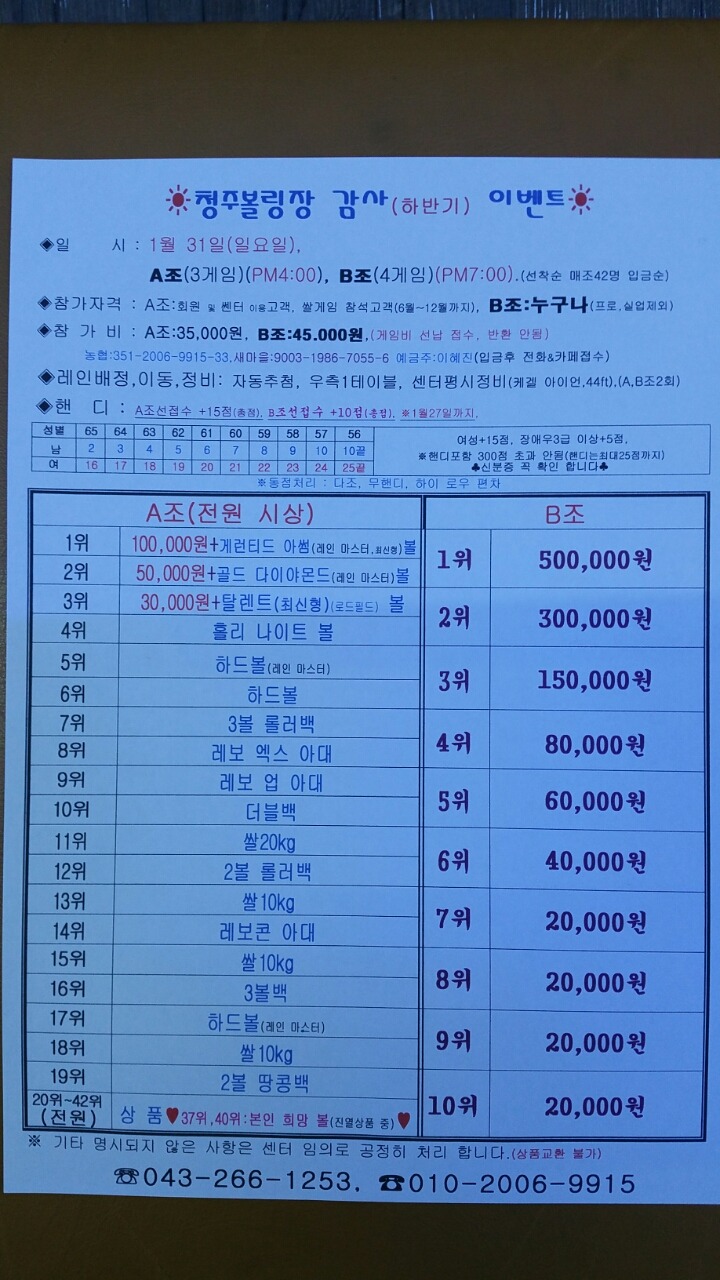 청주볼링장 감사(하반기) 이벤트
◈일 시 : 1월 31일(일요일),
A조(3게임)(PM4:00), B조(4게임)(PM7:00).(선착순 매조42명 입금순)
◈참가자격 : A조:회원 및 쎈터 이용고객, 쌀게임 참석고객(6월~12월까지), B조:누구나(프로,실업제외)
◈참 가 비 : A조:35,000원, B조:45.000원,(게임비 선납 접수, 반환 안됨)
농협:351-2006-9915-33,새마을:9003-1986-7055-6 예금주:이혜진(입금후 전화&카페접수)
◈레인배정,이동,정비: 자동추첨, 우측1테이블, 센터평시정비(케겔 아이언,44ft),(A,B조2회)
◈핸 디 : A조선접수 +15점(총점), B조선접수 +10점(총합), ※1월27일까지,
성별 65 64 63 62 61 60 59 58 57 56
남 2 3 4 5 6 7 8 9 10 10끝
여 16 17 18 19 20 21 22 23 24 25끝
여성+15점, 장애우3급 이상+5점,
※핸디포함 300점 초과 안됨(핸디는최대25점까지)
♣신분증 꼭 확인 합니다♣
※동점처리 : 다조, 무핸디, 하이 로우 편차
A조(전원 시상)
1위 100,000원+게런티드 아썸(레인 마스터,최신형)볼
2위 50,000원+골드 다이야몬드(레인 마스터)볼
3위 30,000원+탈렌트(최신형)(로드필드) 볼
4위 홀리 나이트 볼
5위 하드볼(레인 마스터)
6위 하드볼
7위 3볼 롤러백
8위 레보 엑스 아대
9위 레보 업 아대
10위 더블백
11위 쌀20kg
12위 2볼 롤러백
13위 쌀10kg
14위 레보콘 아대
15위 쌀10kg
16위 3볼백
17위 하드볼(레인 마스터)
18위 쌀10kg
19위 2볼 땅콩백
20위~42위(전원) 상 품♥37위,40위:본인 희망 볼(진열상품 중)♥
B조
1위 500,000원
2위 300,000원
3위 150,000원
4위 80,000원
5위 60,000원
6위 40,000원
7위 20,000원
8위 20,000원
9위 20,000원
10위 20,000원
※ 기타 명시되지 않은 사항은 센터 임의로 공정히 처리 합니다.(상품교환 불가)
☎043-266-1253, ☎010-2006-9915